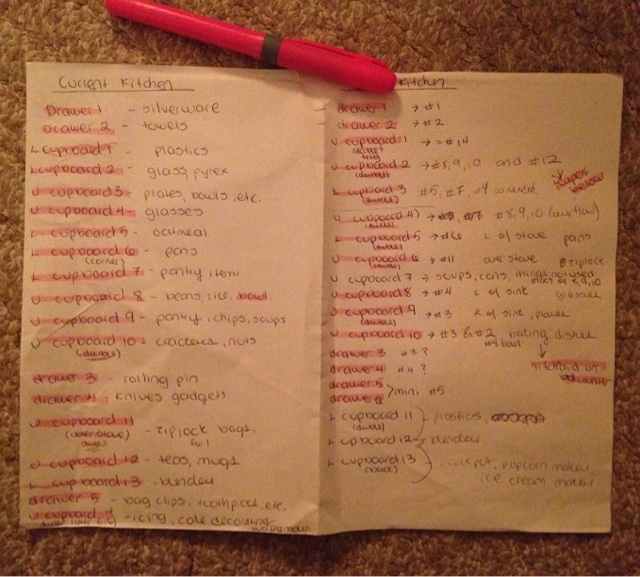 Current Kitchen
Drawer 1 - silverware
Drawer 2 - towels
L cupboard 1 - plastics
L cupboard 2 - glass, pyrex
U cupboard 3 - plates, bowls, etc.
U cupboard 4 - glasses
L cupboard 5 - oatmeal
L cupboard 6 - pans
(corner)
L cupboard 7 - pantry items
U cupboard 8 - beans, rice,
U cupboard 9 - pantry, chips, soups
U cupboard 10 - crackers, nuts
(double)
drawer 3 - rolling pin
drawer 4 - knives gadgets
U cupboard 11
(over stove) - ziplock bags,
foil
U cupboard 12 - teas, mugs
L cupboard 13 - blender
drawer 5 - bag clips, toothpicks, etc.
U cupboard - icing, cake decorating
Kitchen
drawer 1 → #1
drawer 2 → #2
U cupboard 1 → #14
U cupboard 2 → #8, 9, 10 and #12
(double)
L cupboard 3 #5, #7, #9
(double)
U cupboard 4 → #8, 9, 10 (overflow)
(double)
L cupboard 5 → #6 L of stove pans
(double)
U cupboard 6 → #11 over stove ziplock
(double)
U cupboard 7 → soups, cans, things not used
U cupboard 8 → #4 L of sink glasses
(double)
U cupboard 9 → #3 R of sink, plates
(double)
U cupboard 10 → #3 & #2 bating dishes
drawer 3 #3?
drawer 4 #4?
drawer 5
drawer 6 > mini #5
L cupboard 11 plastics,
(double)
L cupboard 12 blender
L cupboard 13 crock pot, popcorn maker
ice cream maker